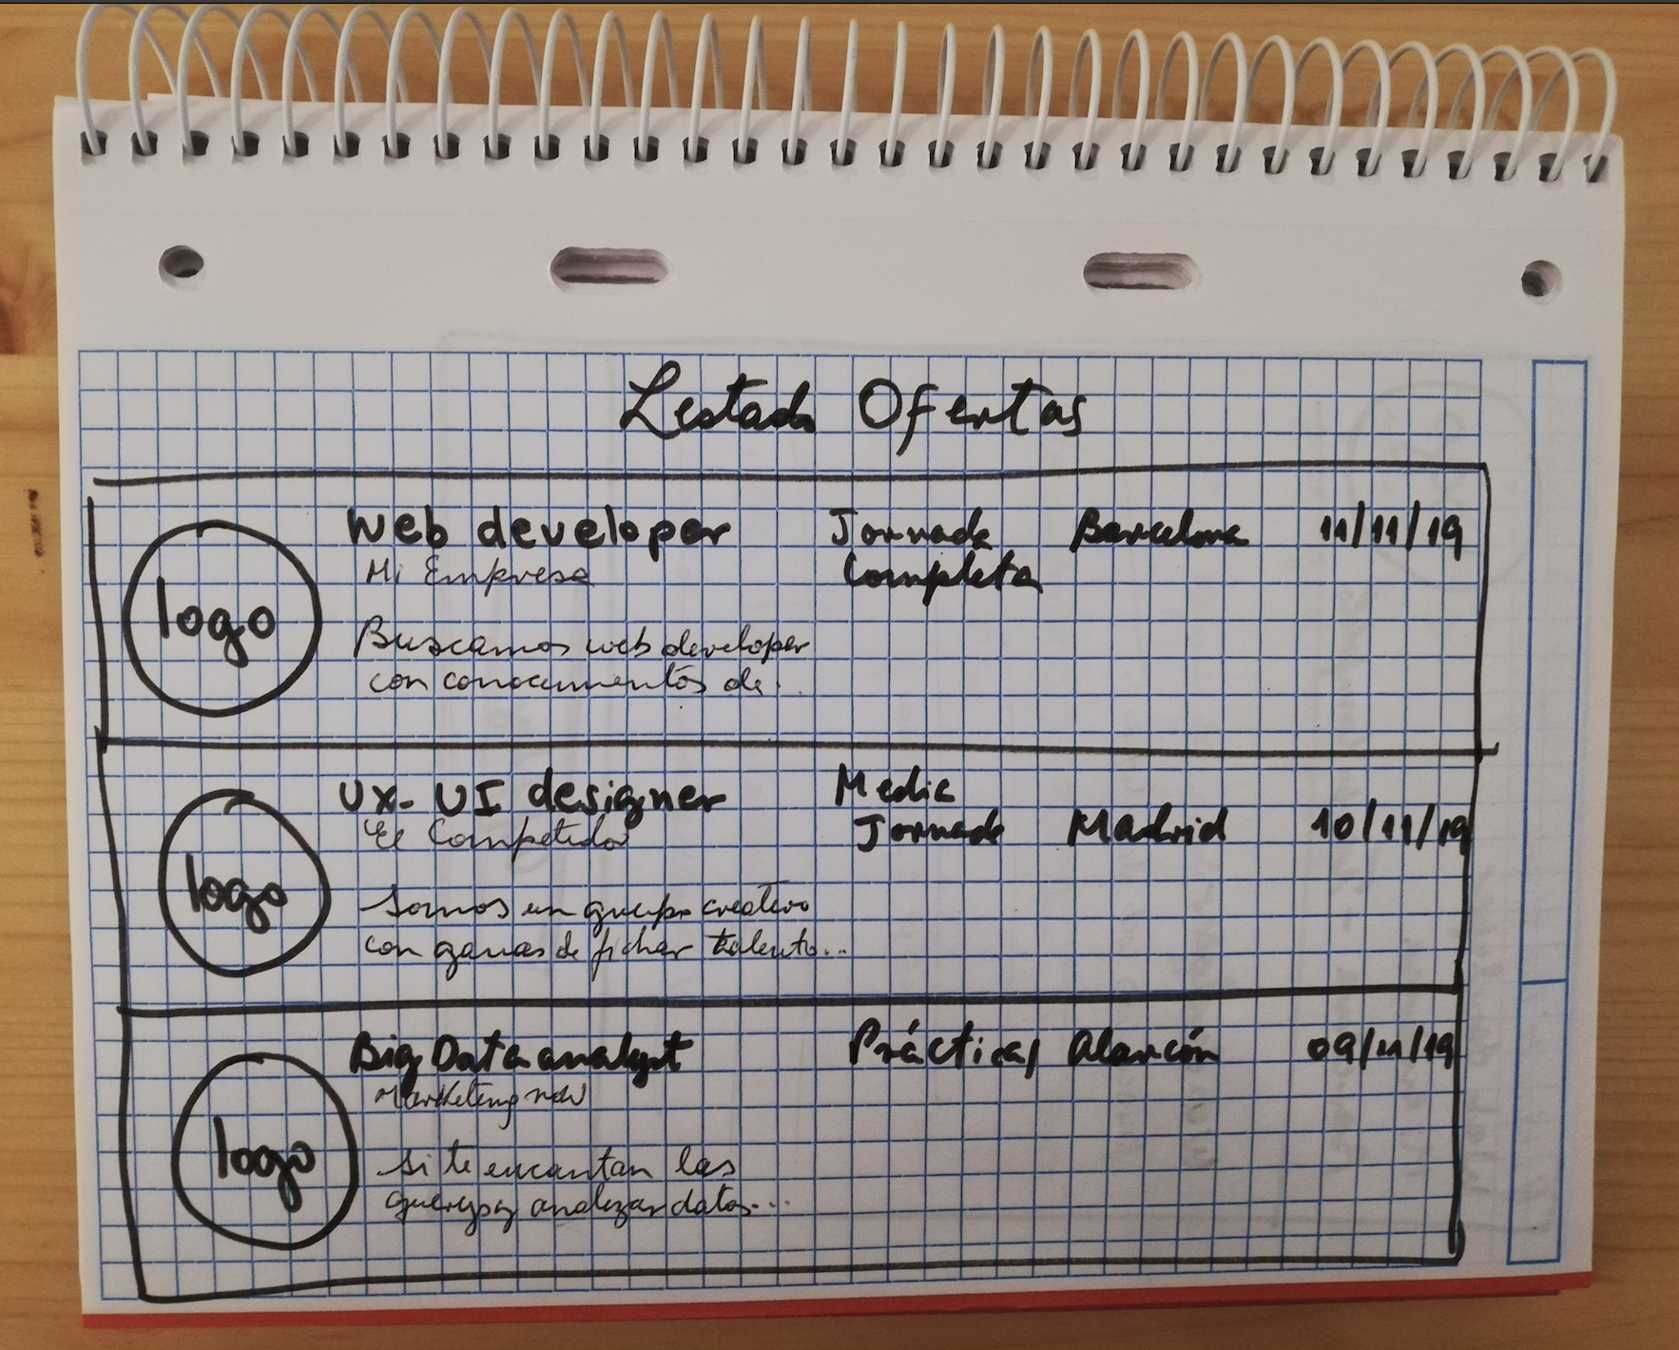 Listado Ofertas
Web developer Jornada Barcelona 11/11/19
Mi Empresa Completa
logo
Buscamos web developer
con conocimientos de...
UX-UI designer Media
El Competidor Jornada Madrid 10/11/19
logo
Somos un grupo creativo
con ganas de fichar talento...
Big Data analyst Prácticas Alarcón 09/11/19
Marketing now
logo
Si te encantan las
querys y analizar datos...